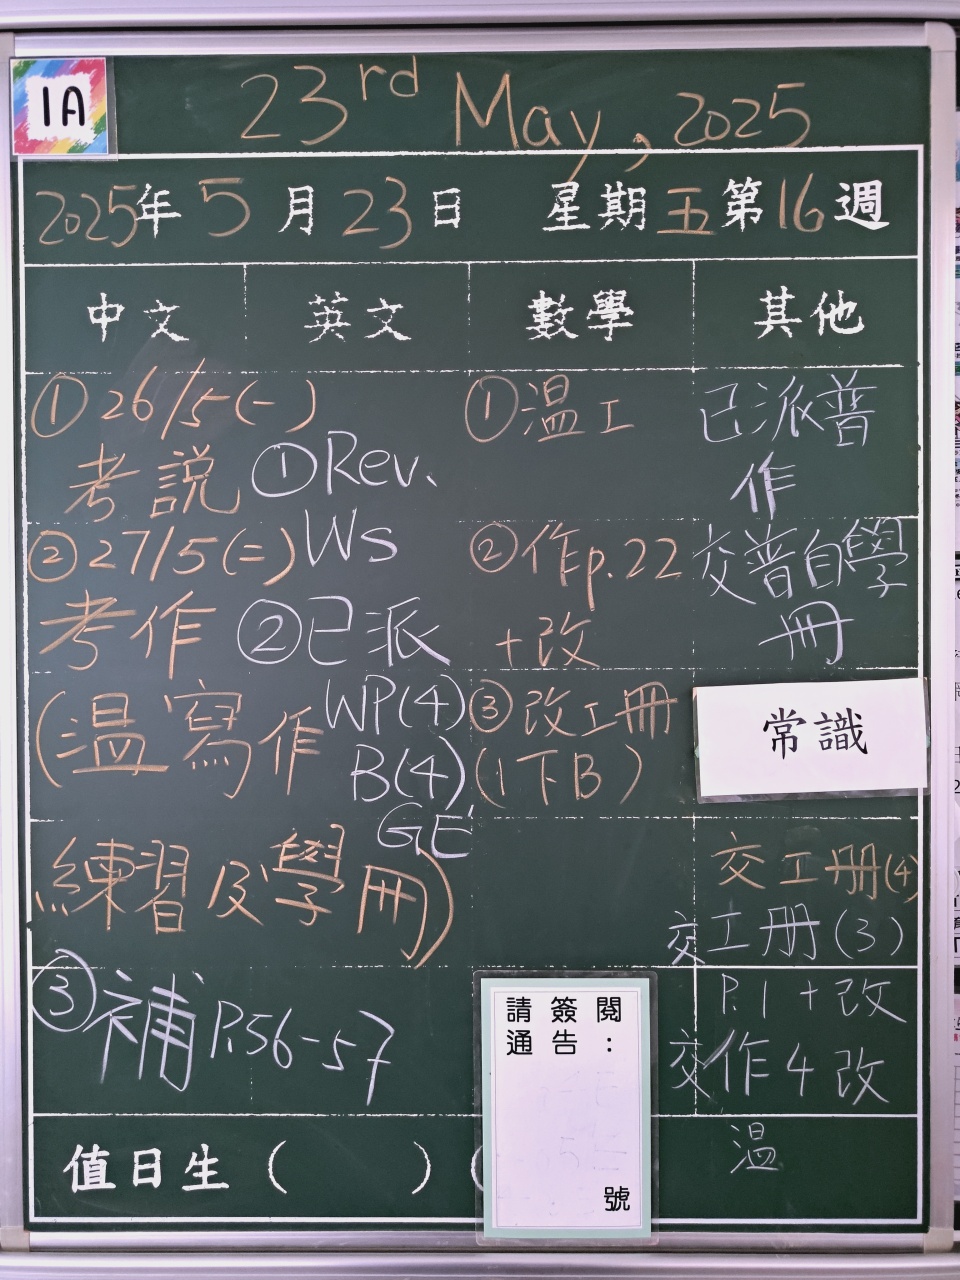 1A
23rd May, 2025
2025年5月23日 星期五第16週
中文
英文
數學
其他
①26/5(一)
考説
②27/5(二)
考作
(温寫作
練習及學冊)
③補P.56-57
①Rev.
Ws
②已派
WP(4)
B(4)
GE
①温工
②作p.22
+改
③改工冊
(1下B)
已派普
作
交普自學
冊
常識
交工册(4)
交工册(3)
P.1+改
交作4改
温
請簽閱
通告:
號
值日生( )(